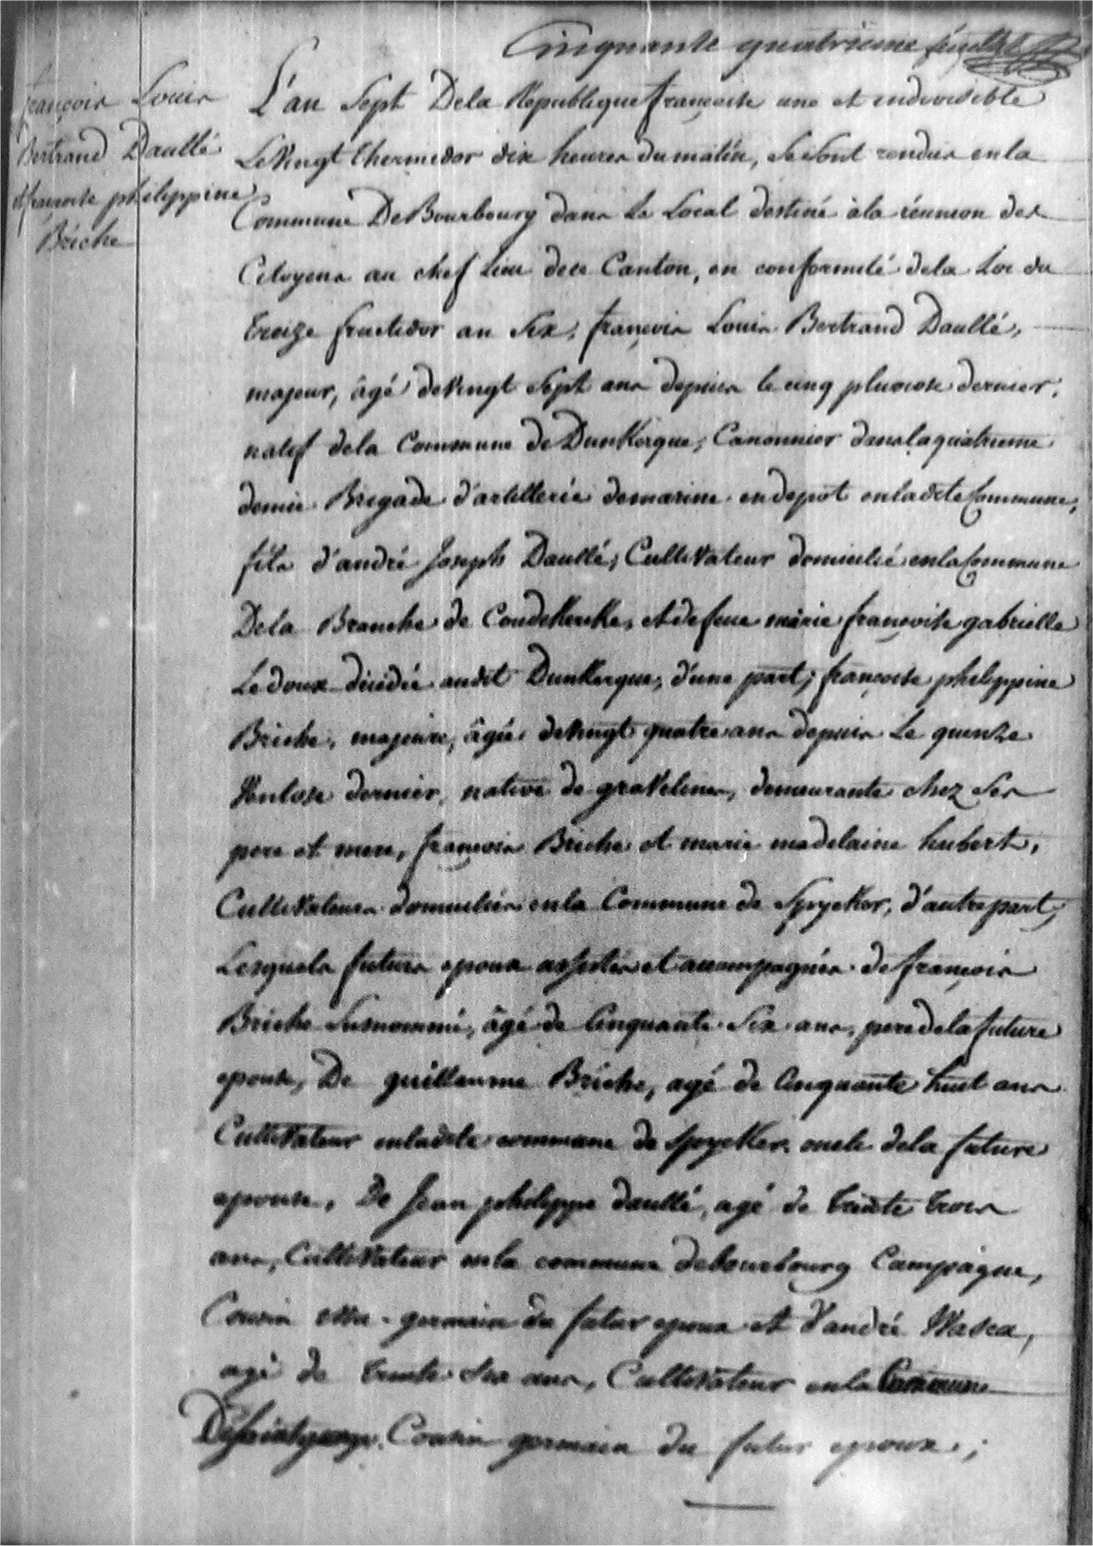 Cinquante quatrieme feuillet
françois Louis
Bertrand Daullé
& françoise philippine
Briche
L'an Sept Dela Republique françoise une et indivisible
Le Vingt thermidor dix heures du matin, Se Sont rendus en la
Commune De Bourbourg dans Le Local destiné à la réunion des
Citoyens au chef Lieu de ce Canton, en conformité de la Loi du
treize fructidor an Six, françois Louis Bertrand Daullé,
majeur, âgé de Vingt Sept ans depuis le cinq pluviose dernier,
natif dela Commune de Dunkerque, Canonnier dans la quatrieme
demie Brigade d'artillerie de marine en depot en ladite Commune,
fils d'andré Joseph Daullé, Cultivateur domicilié en la Commune
De la Branche de Coudekerke, et de feue marie françoise gabrielle
Ledoux décédée audit Dunkerque, d'une part; françoise philippine
Briche, majeure, âgée de Vingt quatre ans depuis Le quinze
Ventose dernier, native de gravelines, demeurante chez Ses
pere et mere, françois Briche et marie madelaine hubert,
Cultivateurs domiciliés en la Commune de Spycker, d'autre part,
Lesquels futurs epoux assistés et accompagnés de françois
Briche Susnommé, âgé de Cinquante Six ans, pere de la future
epouse, De guillaume Briche, agé de Cinquante huit ans
Cultivateur en ladite commune de Spycker, oncle de la future
epouse, De Jean philippe daullé, agé de trente trois
ans, Cultivateur en la commune de bourbourg Campagne,
Cousin issu-germain du futur epoux et d'andré Wasca,
agé de trente Six ans, Cultivateur en la Commune
Cousin germain du futur epoux;